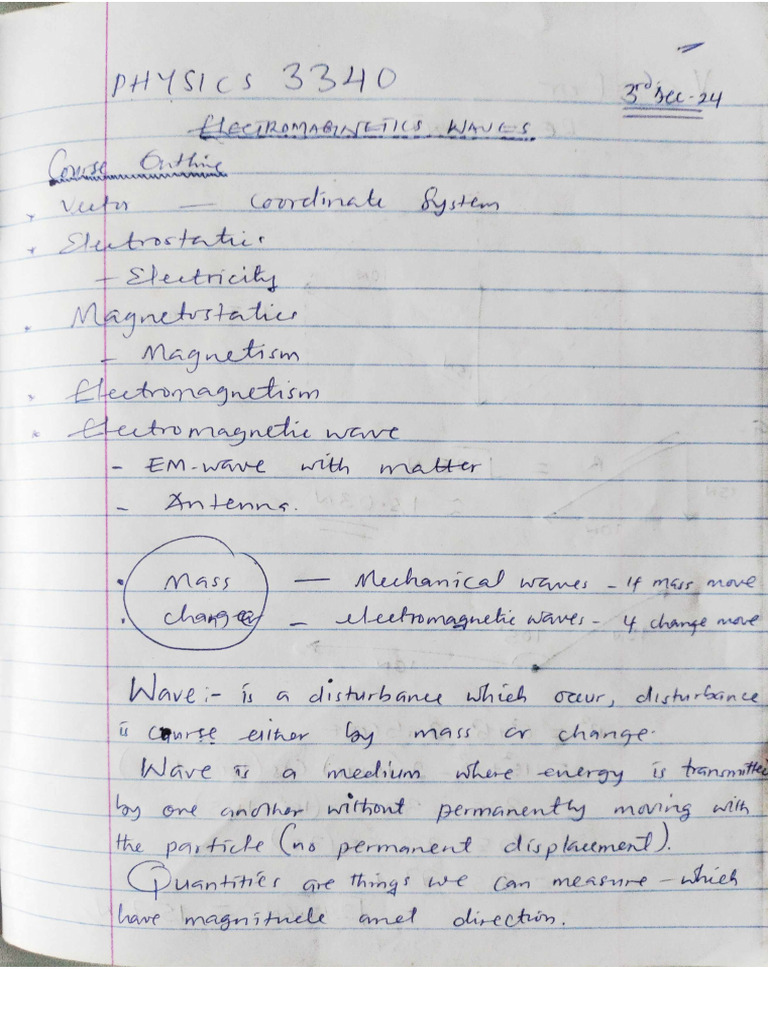 PHYSICS 3340
3rd Dec-24
ELECTROMAGINETICS WAVES
Course Outline
* Vector — Coordinate System
* Electrostatics
- Electricity
* Magnetostatics
- Magnetism
* Electromagnetism
* Electromagnetic wave
- EM-wave with matter
- Antenna.
• Mass — Mechanical waves - If mass move
• change — electromagnetic waves - If change move
Wave:- is a disturbance which occur, disturbance
is course either by mass or change.
Wave is a medium where energy is transmitted
by one another without permanently moving with
the particle (no permanent displacement).
Quantities are things we can measure - which
have magnitude and direction.